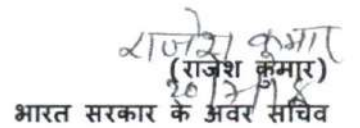 राजेश कुमार
(राजेश कुमार)
भारत सरकार के अवर सचिव